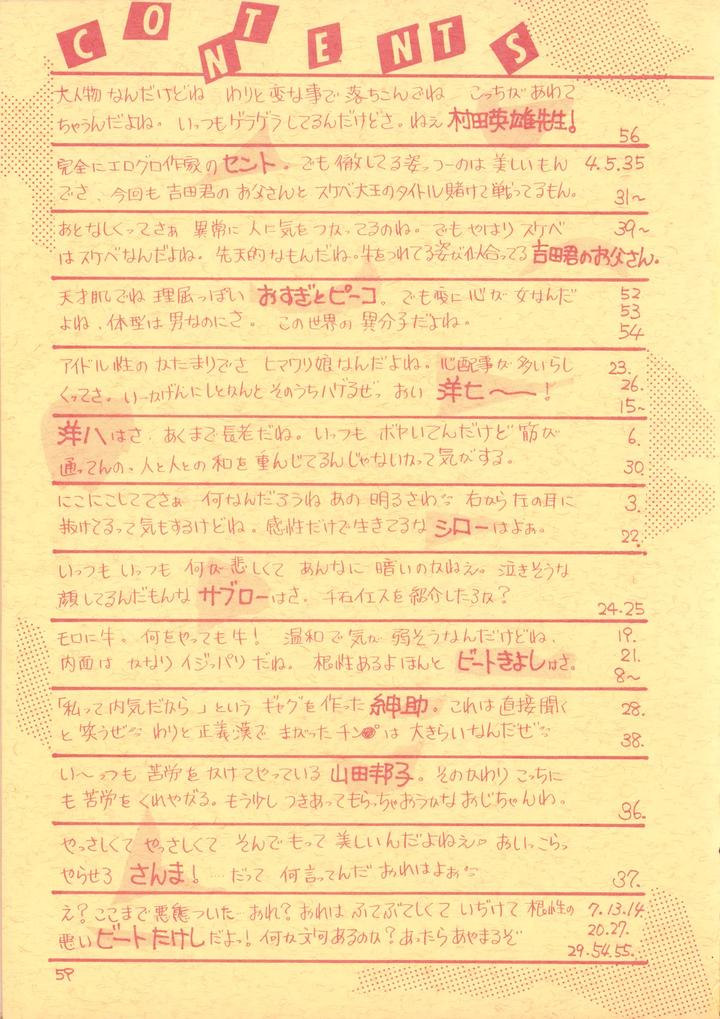 CONTENTS
大人物なんだけどね わりと変な事で落ちこんでね こっちがあわて
ちゃうんだよね。いつもゲラゲラしてるんだけどさ。ねえ村田英雄先生!
56
完全にエログロ作家のセント。でも徹してる姿っつーのは美しいもん
4.5.35
でさ、今回も吉田君のお父さんとスケベ大王のタイトル賭けて戦ってるもん。
31〜
あとなしくってさぁ 異常に人に気をつかってるのね。でもやはりスケベ
39〜
はスケベなんだよね。先天的なもんだね。牛をつれてる姿が似合ってる吉田君のお父さん。
天才肌でね 理屈っぽい おすぎとピーコ。でも変に心が女なんだ
52
53
よね、体型は男なのにさ。この世界の異分子だよね。
54
アイドル性のかたまりでさ ヒマワリ娘なんだよね。心配事が多いらし
23.
くってさ。いーかげんにしとかんとそのうちハゲるぜっ おい 洋七〜〜!
26.
15~
洋八はさ、あくまで長老だね。いつもボヤいてんだけど筋が
6.
通ってんの、人と人との和を重んじてるんじゃないかって気がする。
30.
にこにこしててさぁ 何なんだろうねあの明るさわ 右から左の耳に
3.
抜けてるって気もするけどね。感性だけで生きてるな シローはよぉ。
22.
いつもいつも 何が悲しくて あんなに暗いのかねえ。泣きそうな
顔してるんだもんな サブローはさ。千石イエスを紹介したろか?
24.25
モロに牛。何をやっても牛! 温和で気が弱そうなんだけどね、
19.
内面はかなりイジッパリだね。根性あるよほんと ビートきよしはさ。
21.
8~
「私って内気だから」という ギャグを作った紳助。これは直接聞く
28.
と笑うぜ わりと正義漢で まがったチン●は大きらいなんだぜ
38.
い〜っつも 苦労をかけてやっている 山田邦子。そのかわりこっちに
も苦労をくれやがる。もう少しつきあってもらっちゃおうかな おじちゃんわ。
36.
やっさしくて やっさしくて そんでもって美しいんだよねえ おいっこらっ
やらせろ さんま! …だって 何言ってんだおれはよぉ
37.
え?ここまで悪態ついた…おれ?おれはふてぶてしくていぢけて根性の
7.13.14.
20.27.
悪いビートたけしだよっ!何か文句あるのか?あったらあやまるぞ
29.54.55.
59